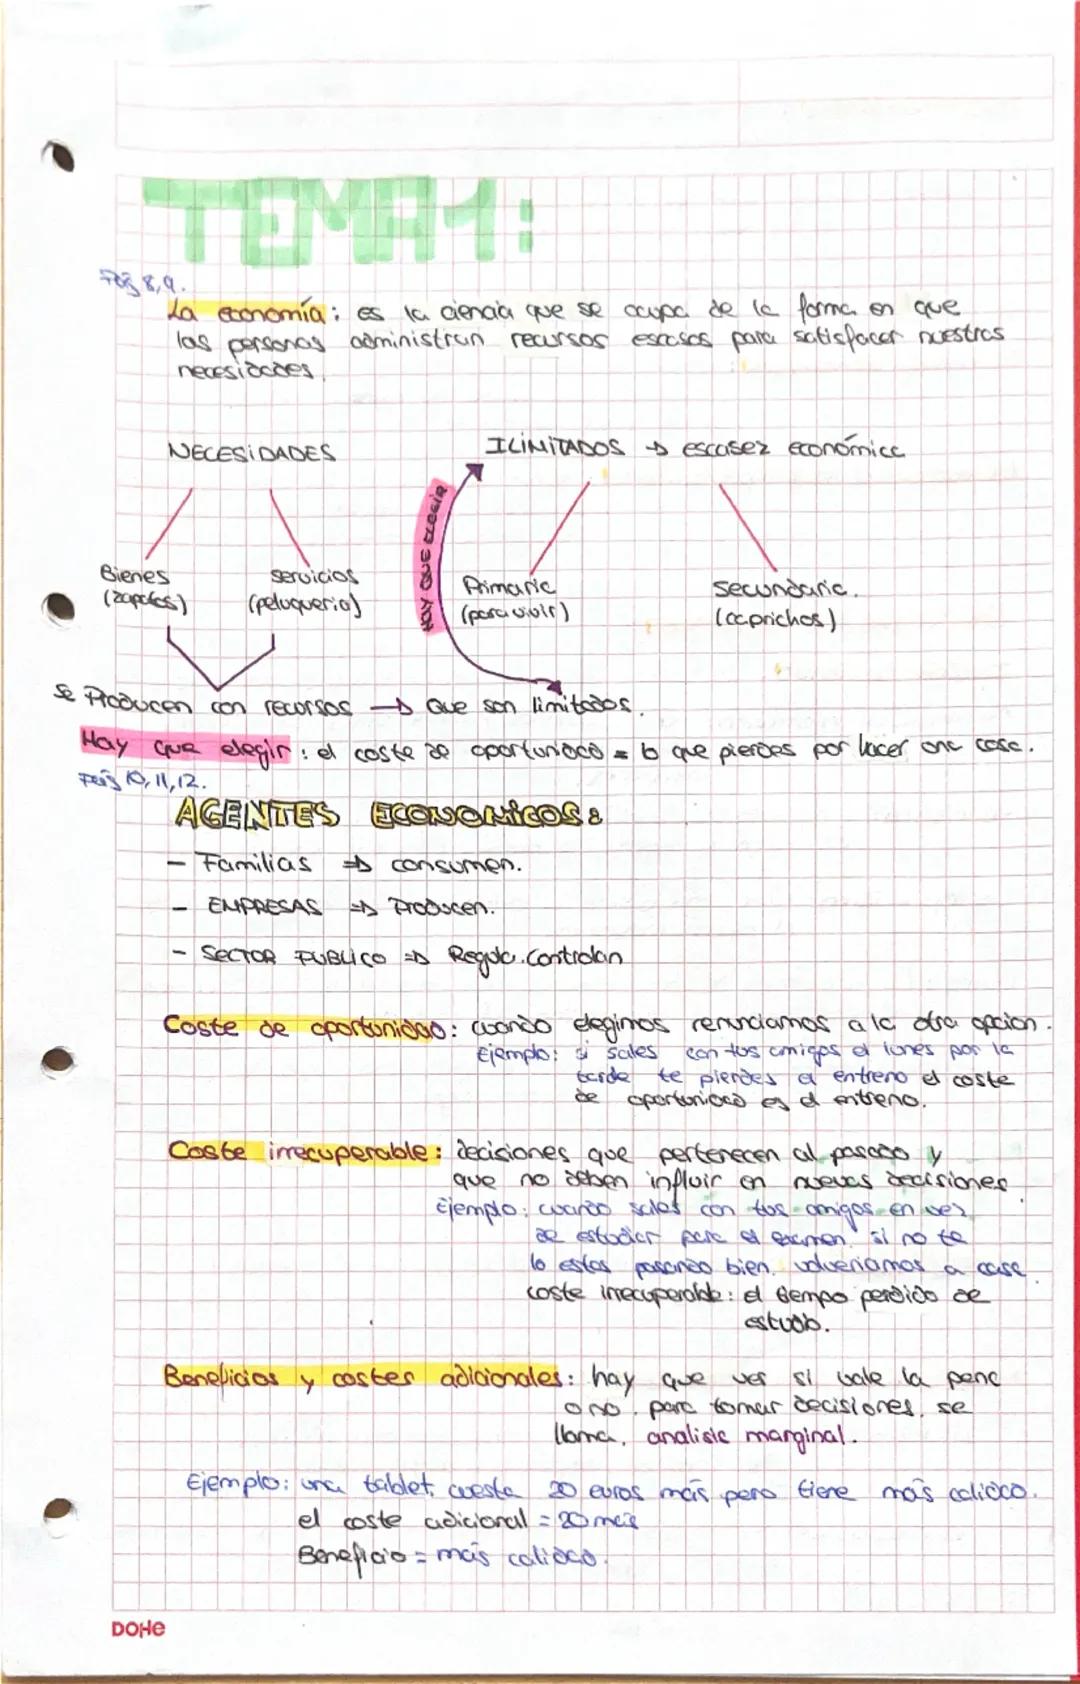 TEMA 1:
Pág 8,9.
La economía: es la ciencia que se ocupa de la forma en que
las personas administran recursos escasos para satisfacer nuestras
necesidades.
NECESIDADES
ILIMITADOS → escasez económica
HAY QUE ELEGIR
Bienes
(zapatos)
servicios
(peluqueria)
Primaria
(para vivir)
secundaria.
(caprichos)
se Producen con recursos → Que son limitados.
Hay que elegir: el coste de oportunidad = lo que pierdes por hacer una cosa.
Pág 10, 11, 12.
AGENTES ECONOMICOS:
- Familias ⇒ consumen.
- EMPRESAS ⇒ Producen.
- SECTOR PUBLICO ⇒ Regula. Controlan
Coste de oportunidad: cuando elegimos renunciamos a la otra opcion.
Ejemplo: si sales con tus amigos el lunes por la
tarde te pierdes el entreno el coste
de oportunidad es el entreno.
Coste irrecuperable: decisiones que pertenecen al pasado y
que no deben influir en nuevas decisiones.
Ejemplo: cuando sales con tus amigos en vez
de estudiar para el examen. si no te
lo estas pasando bien. volveriamos a casa.
coste irrecuperable: el tiempo perdido de
estudio.
Beneficios y costes adicionales: hay que ver si vale la pena
o no. para tomar decisiones. se
llama. analisis marginal.
Ejemplo: una tablet. cuesta 20 euros más pero tiene más calidad.
el coste adicional = 20 más
Beneficio = más calidad.
DOHE